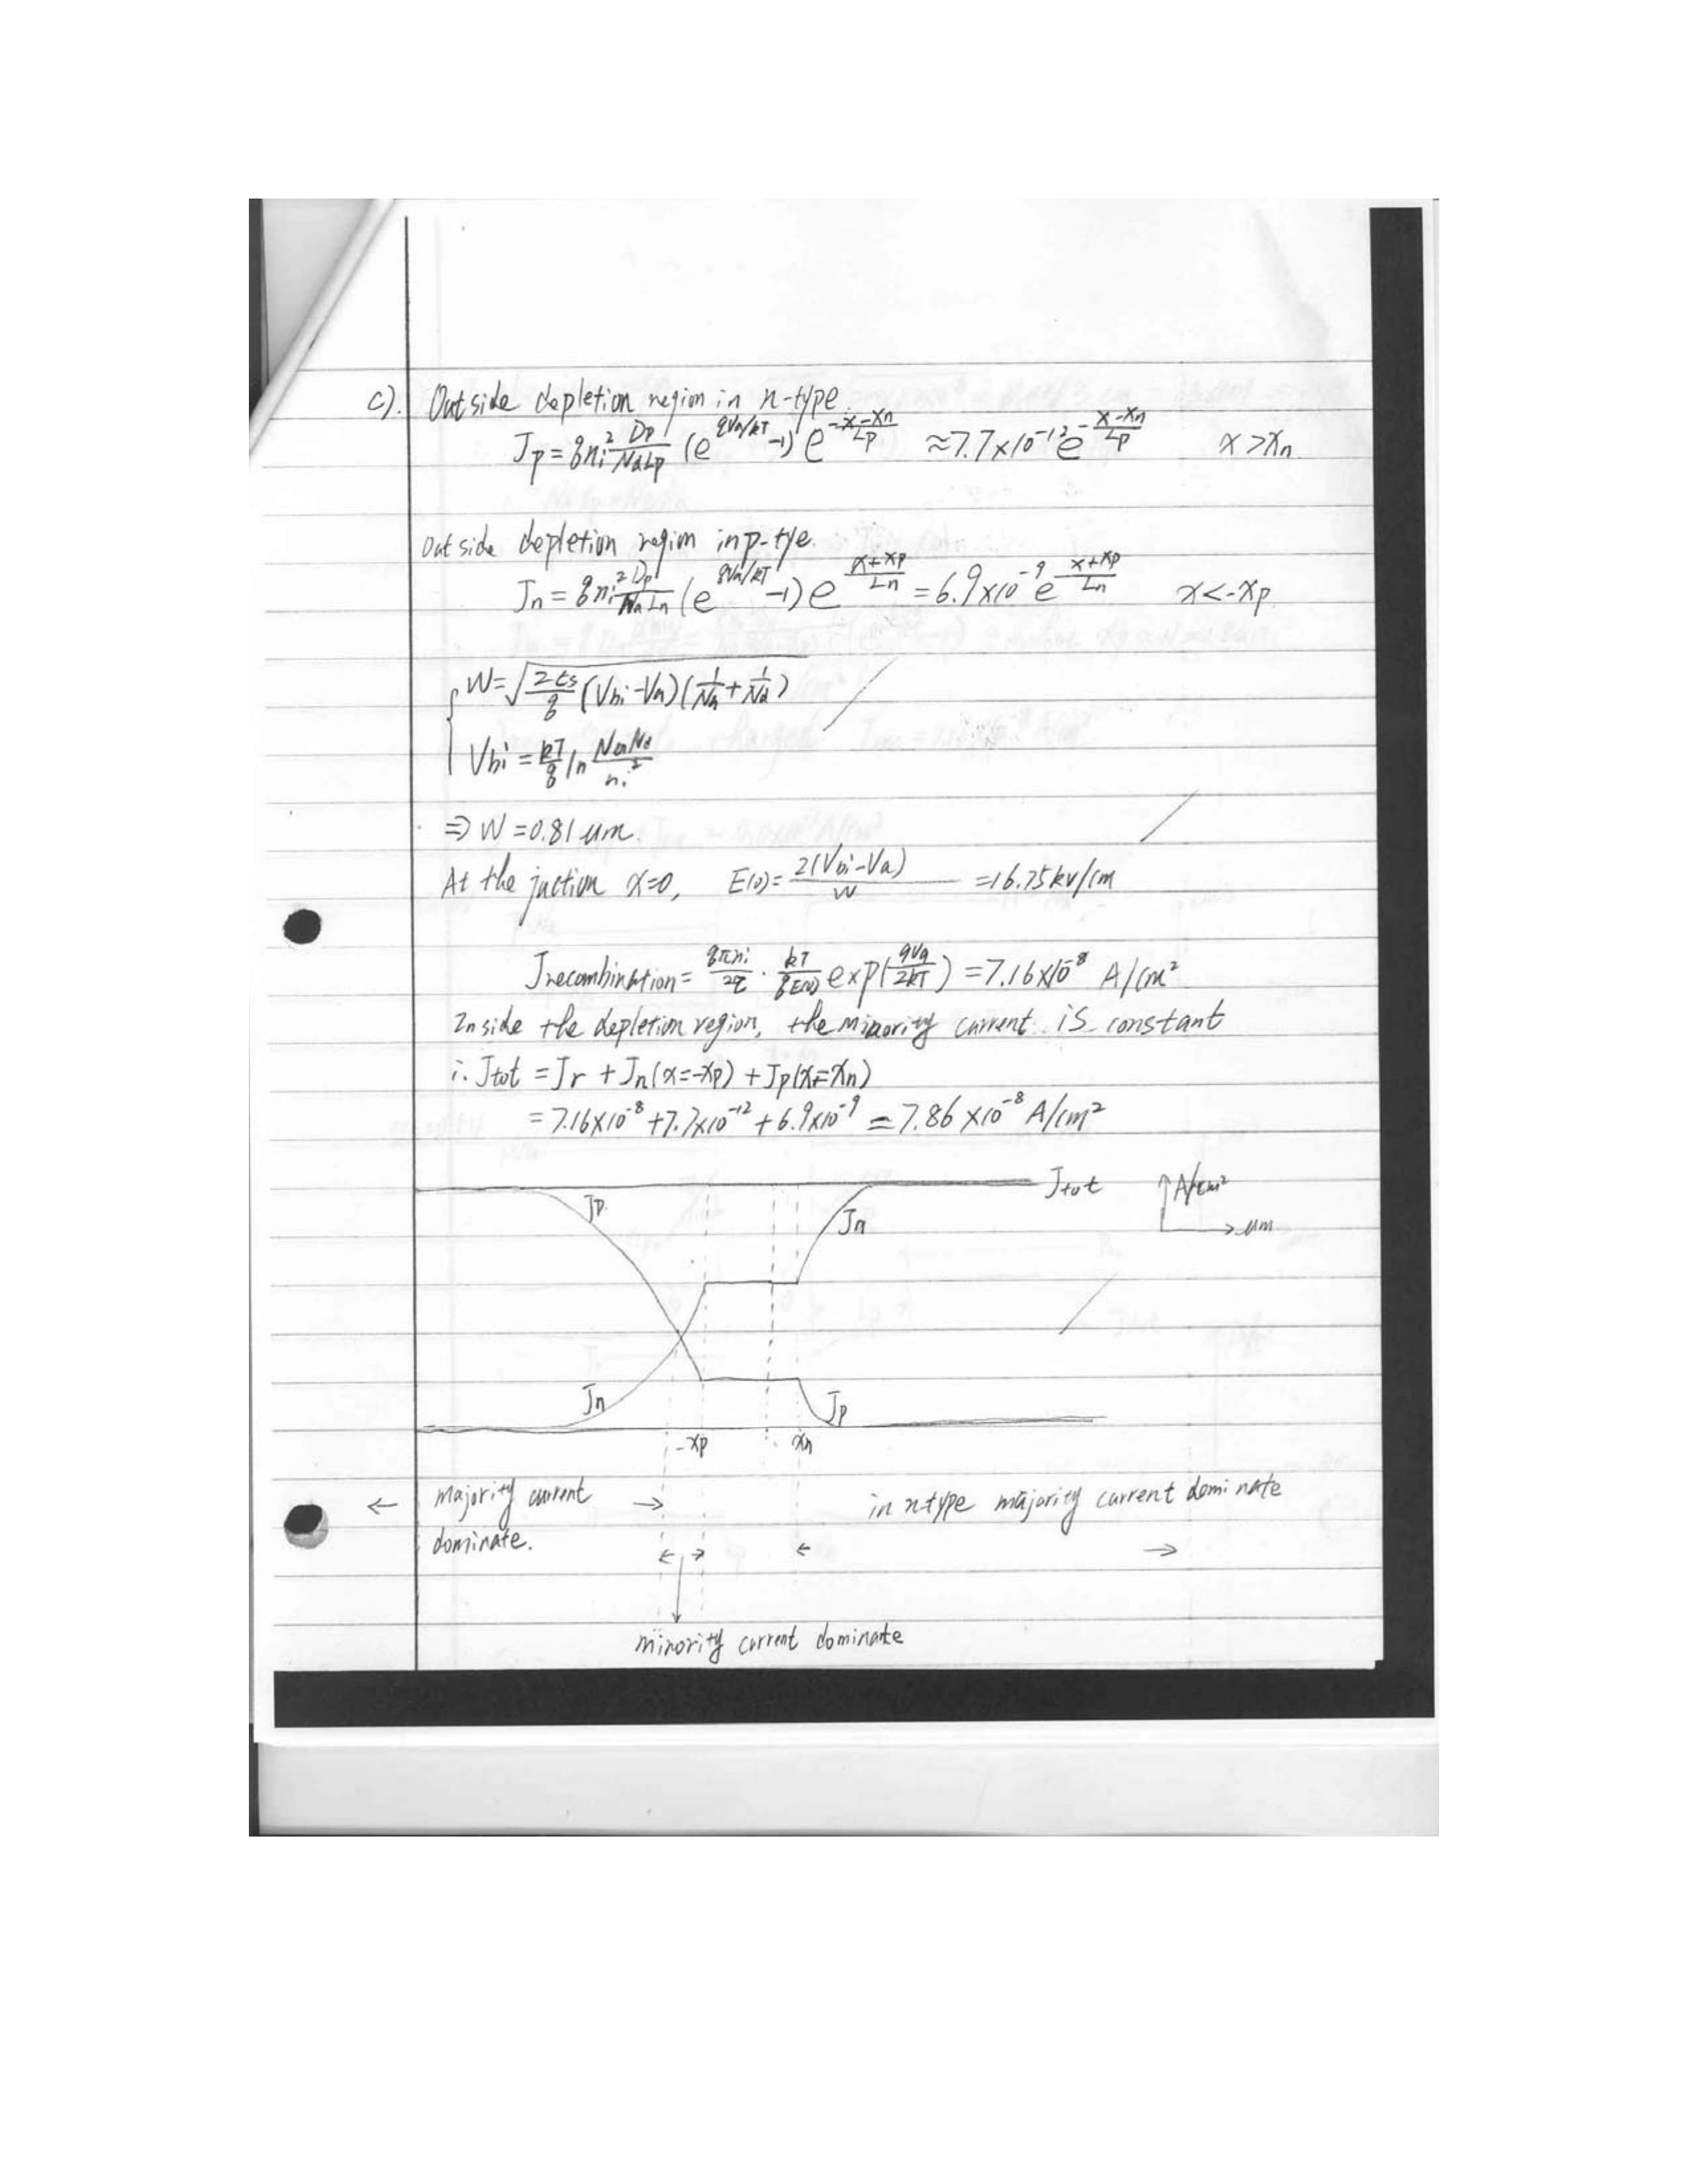 c). Outside depletion region in n-type.
Jp = qni² Dp/NdLp (e^(qVa/kT) -1) e^(-(x-xn)/Lp) ≈ 7.7×10^-12 e^(-(x-xn)/Lp) x > xn
Outside depletion region in p-tye.
Jn = qni² Dp/NaLn (e^(qVa/kT) -1) e^((x+xp)/Ln) = 6.9×10^-9 e^((x+xp)/Ln) x < -xp
W = √(2εs/q (Vbi-Va)(1/Na + 1/Nd))
Vbi = kT/q ln NaNd/ni²
⇒ W = 0.81 um.
At the juction x=0, E(0) = 2(Vbi-Va)/W = 16.75 kv/cm
Jrecombination = qπni/2τ · kT/qE(0) exp(qVa/2kT) = 7.16×10^-8 A/cm²
Inside the depletion region, the minority current is constant
∴ Jtot = Jr + Jn(x=-xp) + Jp(x=xn)
= 7.16×10^-8 + 7.7×10^-12 + 6.9×10^-9 = 7.86×10^-8 A/cm²
Jtot A/cm²
Jp Jn um
Jn Jp
-xp xn
← majority current → in n-type majority current dominate
dominate. ← → ← →
minority current dominate